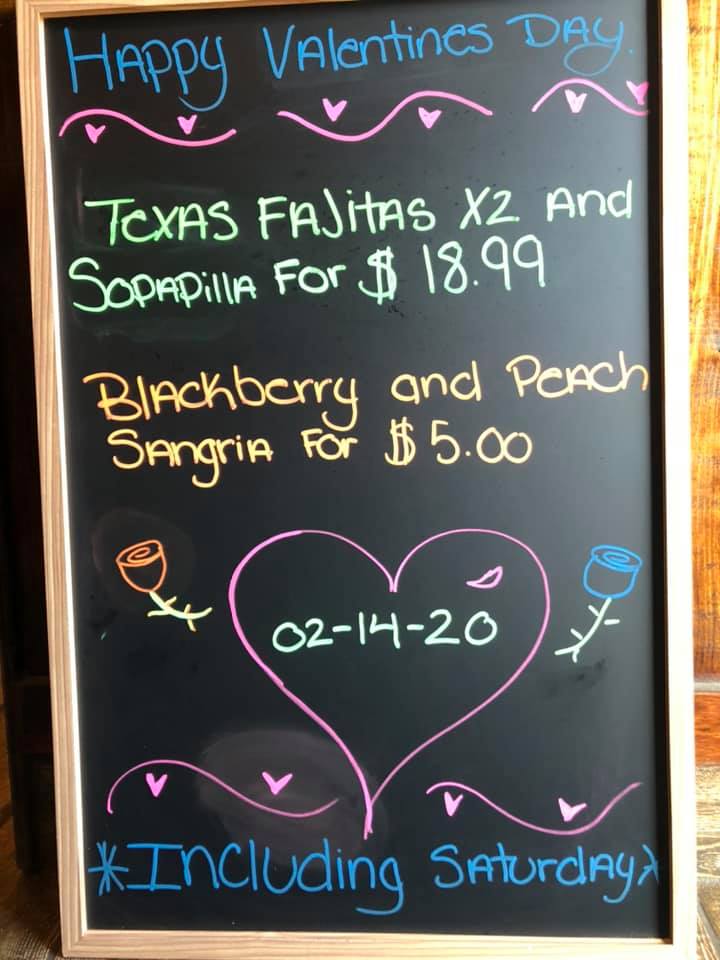 Happy Valentines Day.
Texas Fajitas X2 And
Sopapilla For $ 18.99
Blackberry and Peach
Sangria For $ 5.00
02-14-20
*Including Saturday*